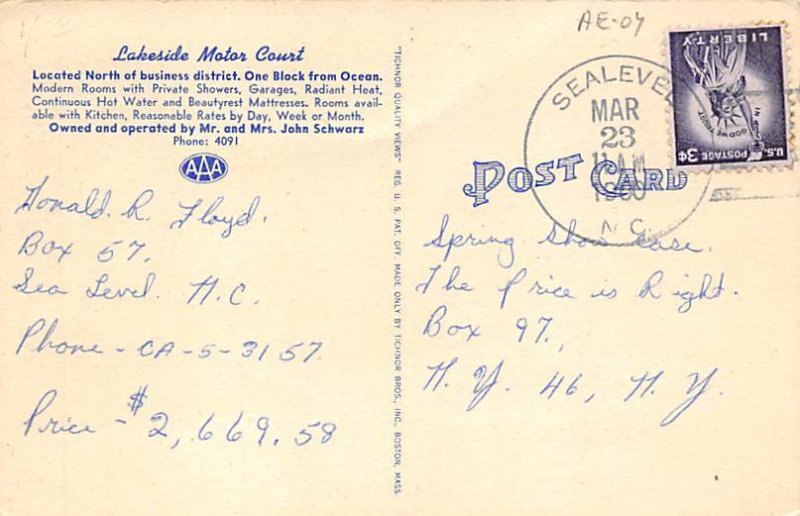 AE-04
Lakeside Motor Court
Located North of business district. One Block from Ocean.
Modern Rooms with Private Showers, Garages, Radiant Heat,
Continuous Hot Water and Beautyrest Mattresses. Rooms avail-
able with Kitchen, Reasonable Rates by Day, Week or Month.
Owned and operated by Mr. and Mrs. John Schwarz
Phone: 4091
AAA
Donald. R. Floyd.
Box 57.
Sea Level. N.C.
Phone - CA-5-3157
Price - $2,669.58
"TICHNOR QUALITY VIEWS" REG. U. S. PAT. OFF. MADE ONLY BY TICHNOR BROS., INC., BOSTON, MASS.
SEALEVEL
MAR
23
11 A.M
1960
N.C.
LIBERTY
IN GOD WE TRUST
U.S. POSTAGE 3¢
POST CARD
Spring Show case.
The Price is Right.
Box 97.,
N.Y. 46, N.Y.